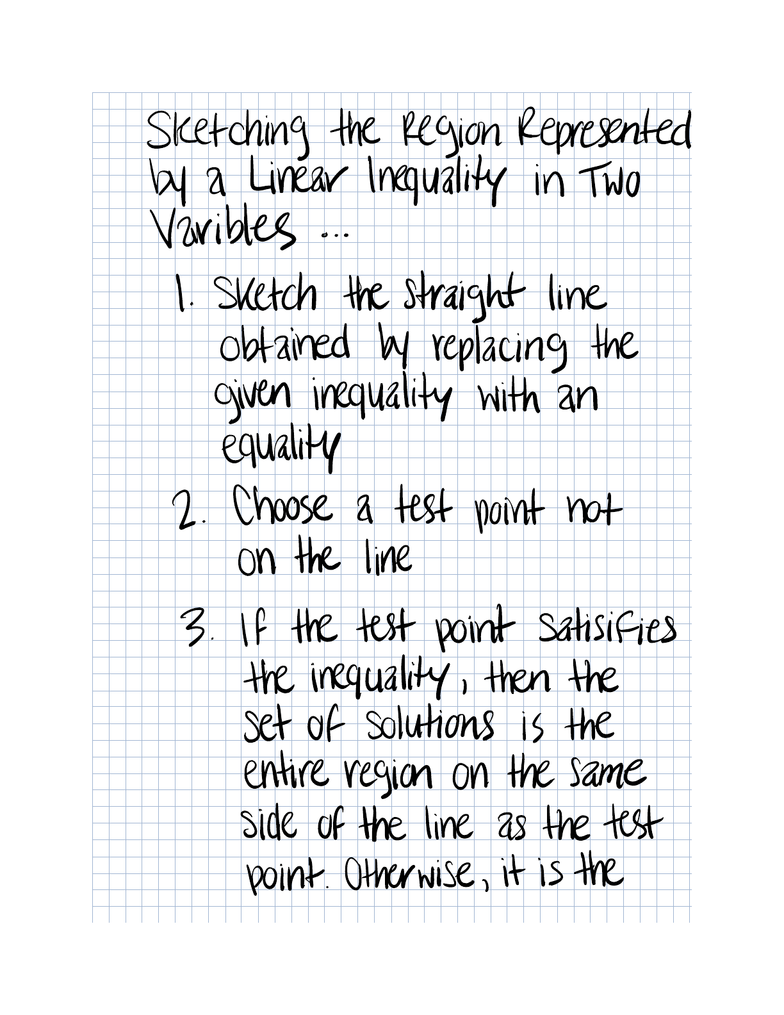 Sketching the Region Represented
by a Linear Inequality in Two
Varibles ...
1. Sketch the straight line
obtained by replacing the
given inequality with an
equality
2. Choose a test point not
on the line
3. If the test point satisifies
the inequality, then the
set of solutions is the
entire region on the same
side of the line as the test
point. Otherwise, it is the